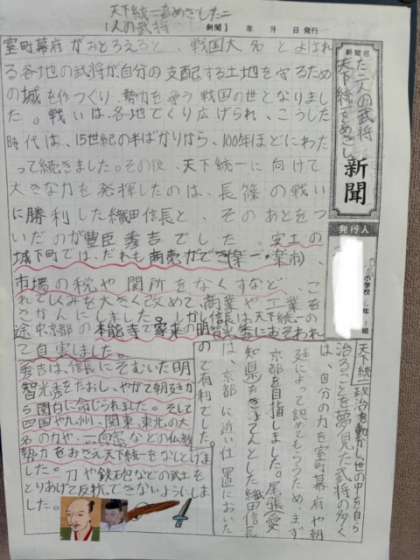 天下統一をめざした二
人の武将
新聞
年 月 日 発行
新聞名
た二人の武将
天下統一をめざし
新聞
発行人
小学校 年 組
室町幕府がおとろえると、戦国大名とよばれ
る各地の武将が自分の支配する土地を守るため
の城を作つくり、勢力を争う戦国の世となりまし
た。戦いは、各地でくり広げられ、こうした
時代は、15世紀の半ばかりなら、100年ほどにわた
って続きました。その後、天下統一に向けて
大きな力を発揮したのは、長篠の戦い
に勝利した織田信長と、そのあとをつ
いだのが豊臣秀吉でした。安土の
城下町では、だれも商売ができ(楽一・楽市)、
市場の税や関所をなくすなど、こ
れてしくみを大きく改めて、商業や工業を
さかんにしました。しかし信長は、天下統一の
途中京都の本能寺で家来の明智光秀におそわれ
て自害しました。
秀吉は、信長にそむいた明
智光秀をたおし、やがて朝廷か
ら関白に命じられました。そして
四国や九州、関東、東北の大
名の力や、一向宗などの仏教
勢力をおさえ天下統一をなしとげま
した。刀や鉄砲などの武士を
とりあげて反抗できないようにしま
した。
天下統一政治を動かし世の中を自ら
治ることを夢見た武将の多く
は、自分の力を室町幕府や朝
廷によって認めてもらうため、まず
京都を目指しました。尾張(愛
知県)をきょてんとした織田信長
は、京都に近い位置においた
ので有利でした。